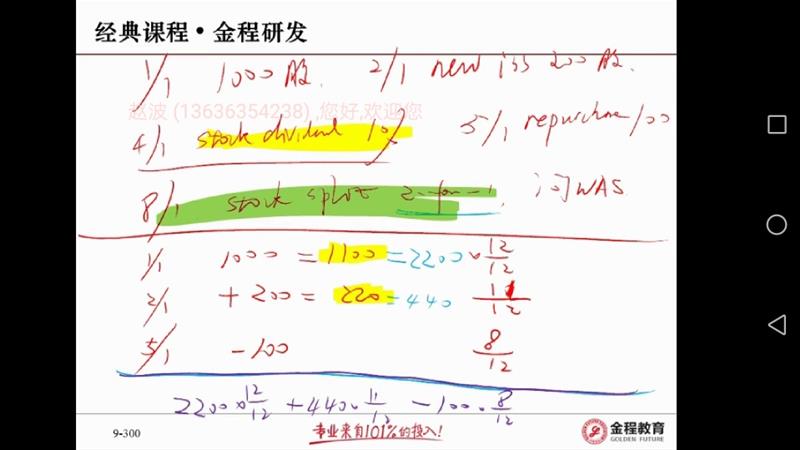 经典课程·金程研发
1/1 1000股. 2/1 new iss 200股.
赵波 (13636354238) ,您好,欢迎您
4/1 stock dividend 10% 5/1 repurchase 100
8/1 stock split 2-for-1, 问WAS
1/1 1000 = 1100 = 2200 × 12/12
2/1 + 200 = 220 = 440 11/12
5/1 -100 8/12
2200 × 12/12 + 440 · 11/12 - 100 · 8/12
9-300 专业来自101%的投入! 金程教育
GOLDEN FUTURE